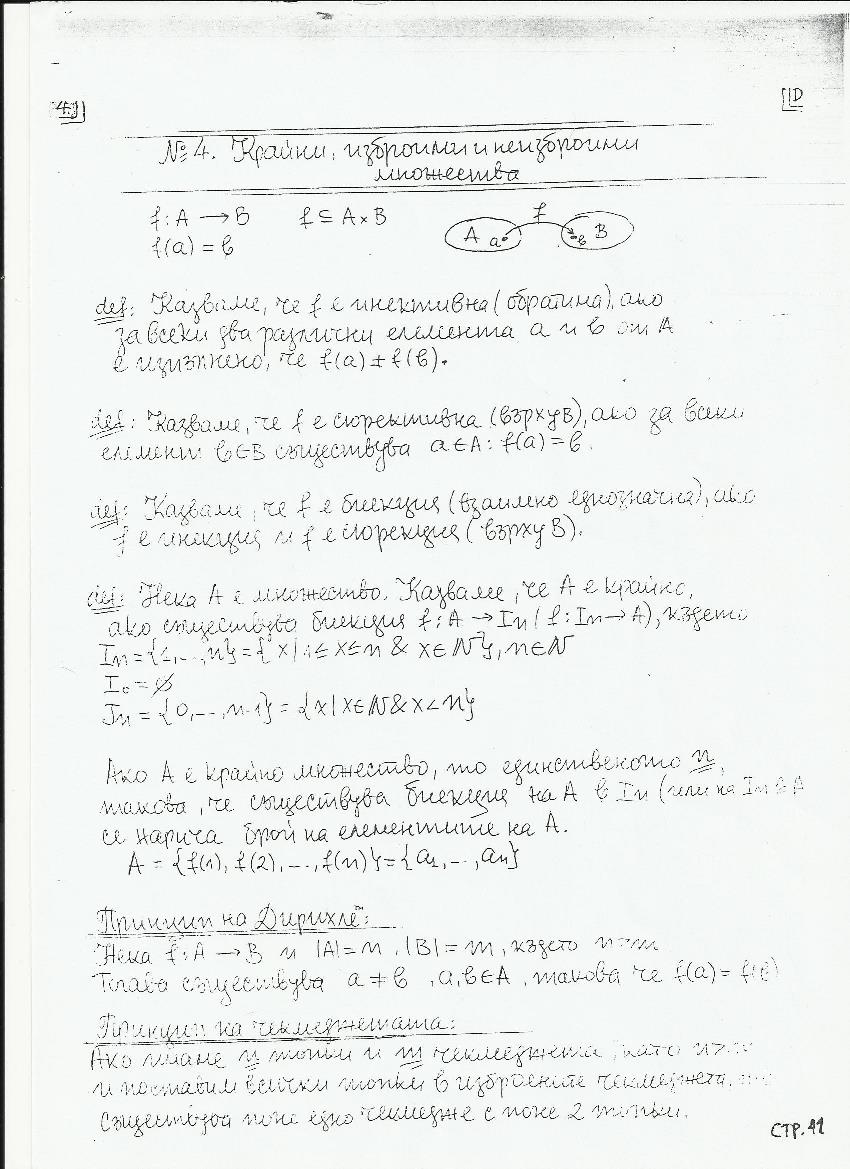 4.1
№ 4. Крайни, изброими и неизброими
множества
f : A → B f ⊆ A × B
f
A a в B
f(a) = в
def: Казваме, че f е инективна (обратима), ако
за всеки два различни елемента а и в от А
е изпълнено, че f(a) ≠ f(в).
def: Казваме, че f е сюрективна (върху B), ако за всеки
елемент в ∈ B съществува a ∈ A : f(a) = в.
def: Казваме, че f е биекция (взаимно еднозначна), ако
f е инекция и f е сюрекция (върху B).
def: Нека A е множество. Казваме, че A е крайно,
ако съществува биекция f : A → In (f : In → A), където
In = {1,..., n} = {x | 1 ≤ x ≤ n & x ∈ N}, n ∈ N
I0 = ∅
Jn = {0,..., n-1} = {x | x ∈ N & x < n}
Ако A е крайно множество, то единственото n,
такова, че съществува биекция на A в In (или на In в A
се нарича брой на елементите на A.
A = {f(1), f(2), ..., f(n)} = {a1, ..., an}
Принцип на Дирихле:
Нека f : A → B и |A| = n, |B| = m, където n > m
Тогава съществува a ≠ в, a, в ∈ A, такова че f(a) = f(в)
Принцип на чекмеджетата:
Ако имаме n топки и m чекмеджета, като n >
и поставим всички топки в изброените чекмеджета,
съществува поне едно чекмедже с поне 2 топки.
СТР. 11